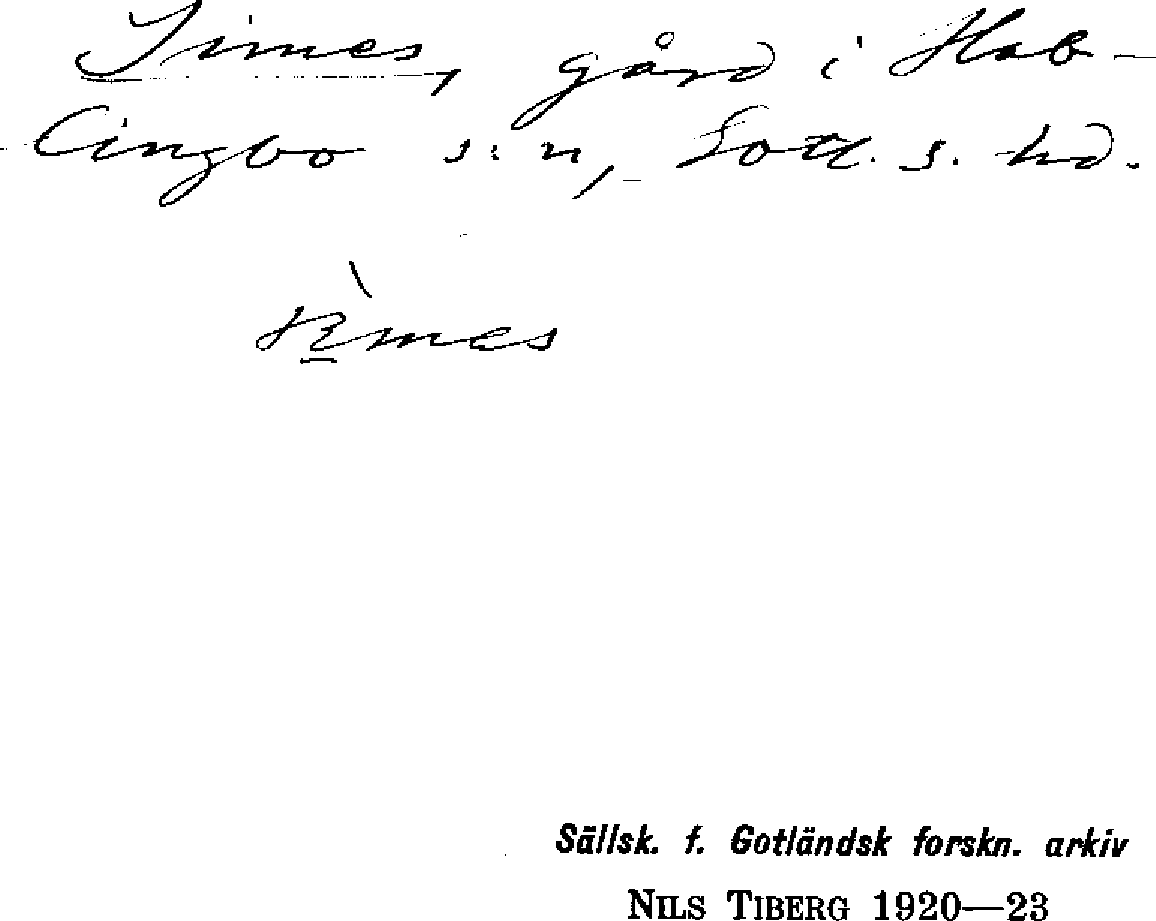 Simes, gård i Hab-
lingbo s:n, Gotl. s. hd.
Sällsk. f. Gotländsk forskn. arkiv
NILS TIBERG 1920—23